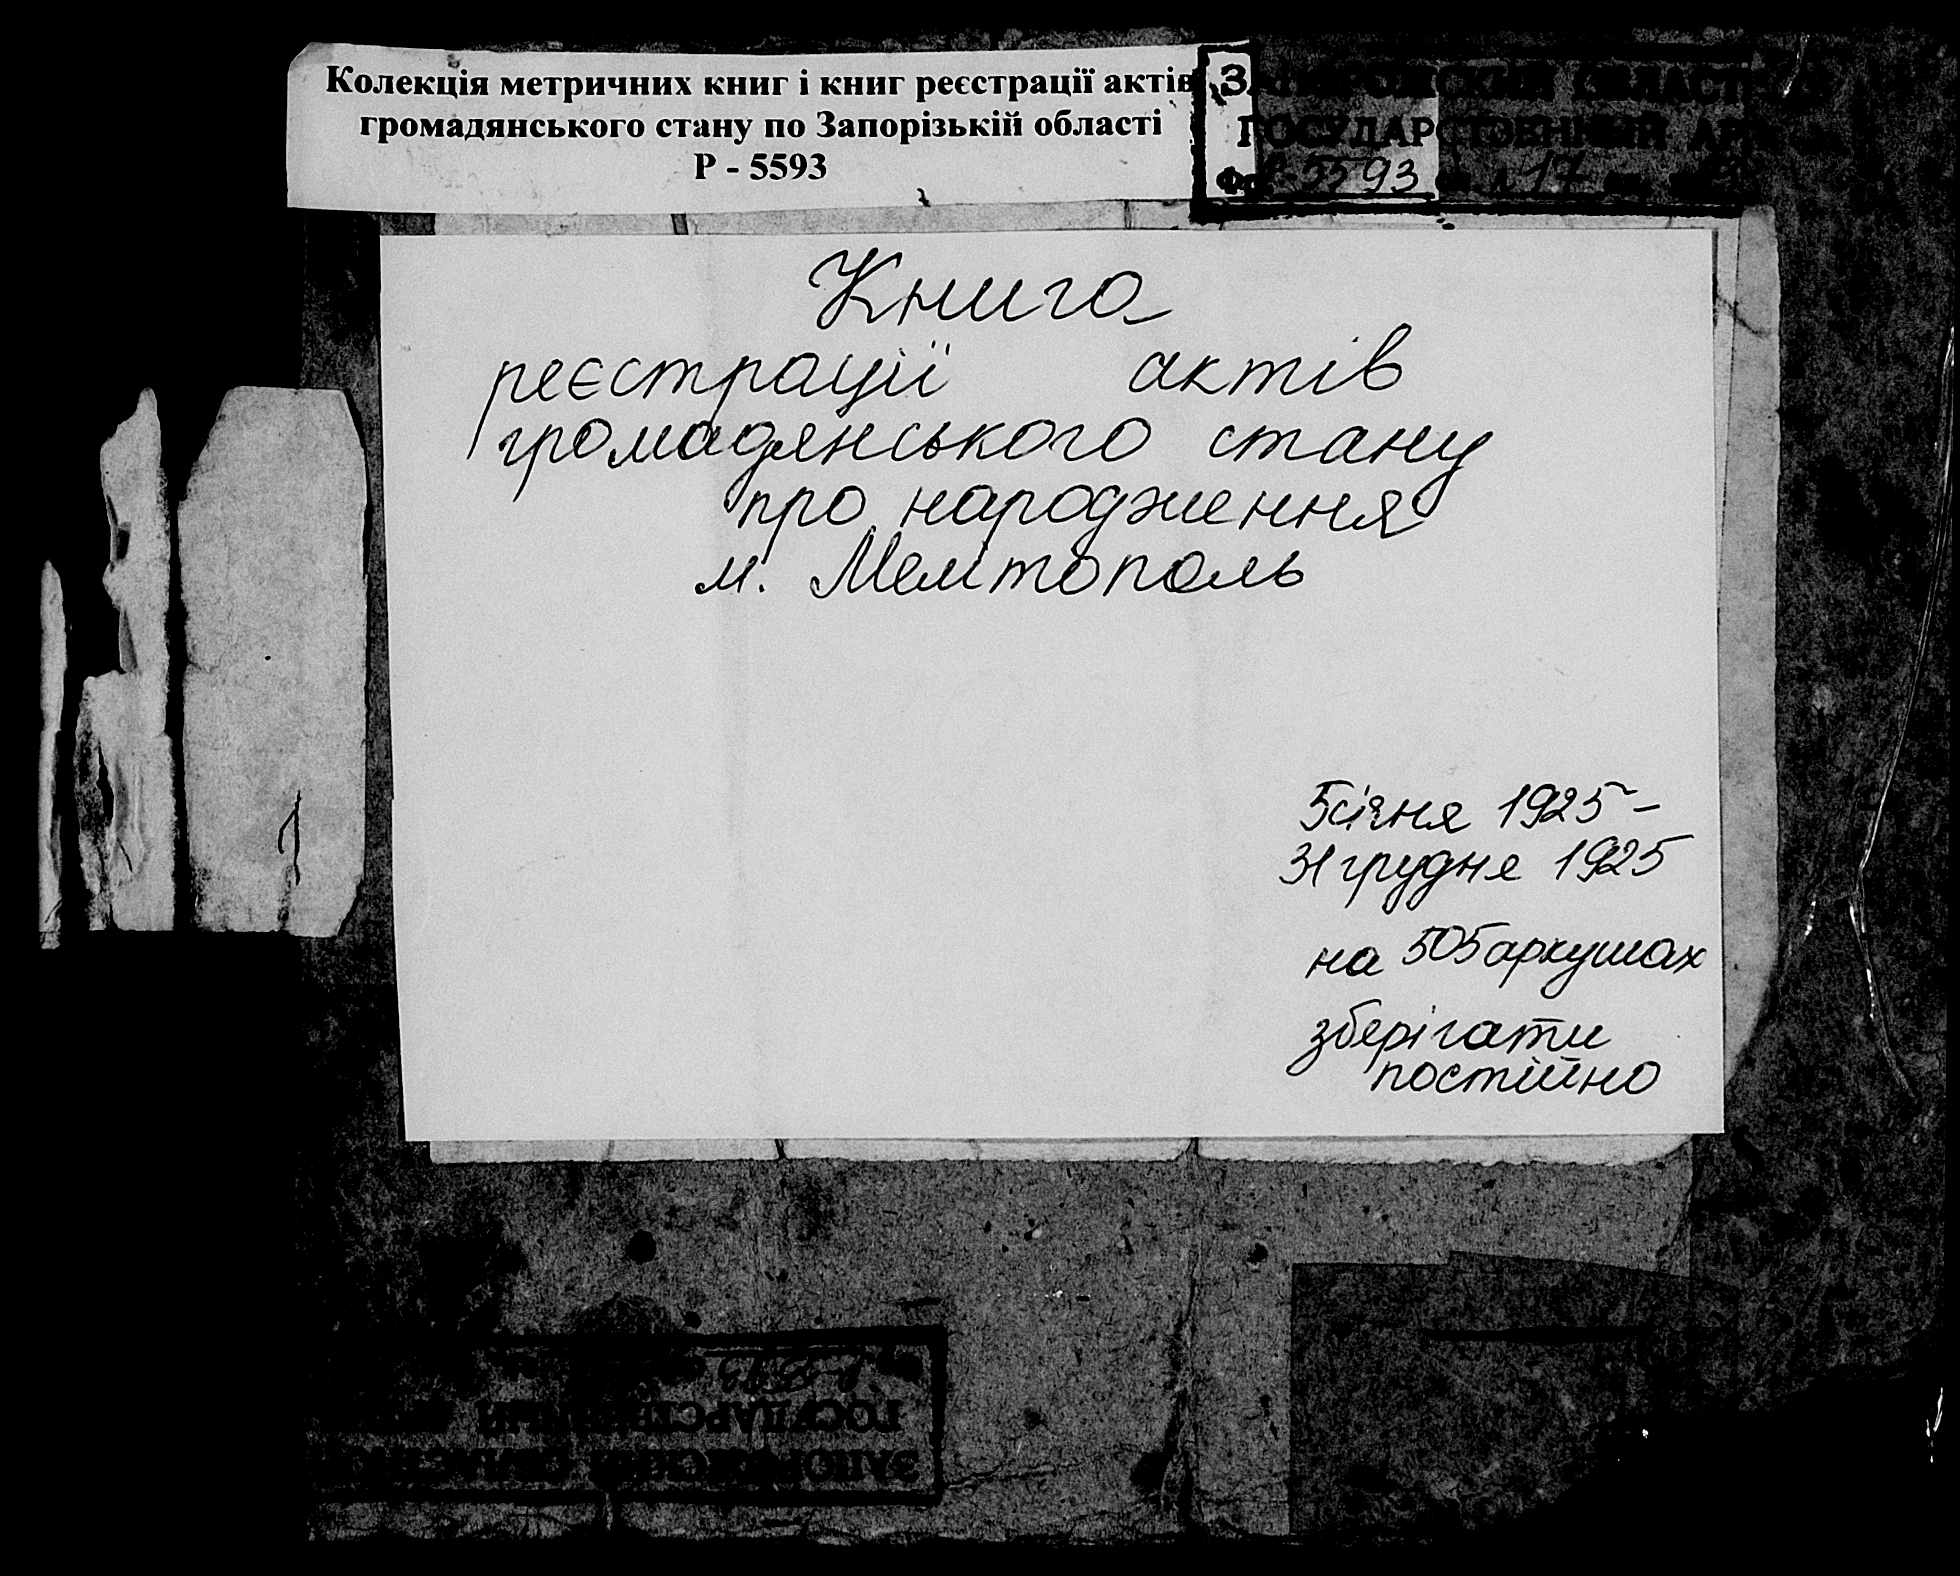 Колекція метричних книг і книг реєстрації актів
громадянського стану по Запорізькій області
Р - 5593
ЗАПОРОЖСКИЙ ОБЛАСТНОЙ
ГОСУДАРСТВЕННЫЙ АРХИВ
Фонд Р-5593 оп. 17
Книга
реєстрації актів
громадянського стану
про народження
м. Мелітополь
5 січня 1925 –
31 грудня 1925
на 505 аркушах
зберігати
постійно
ЗАПОРОЖСКИЙ ОБЛАСТНОЙ
ГОСУДАРСТВЕННЫЙ
Р-5593